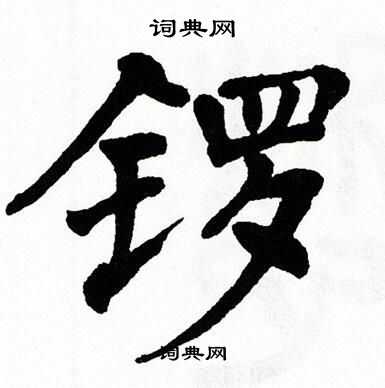 词典网
锣
词典网